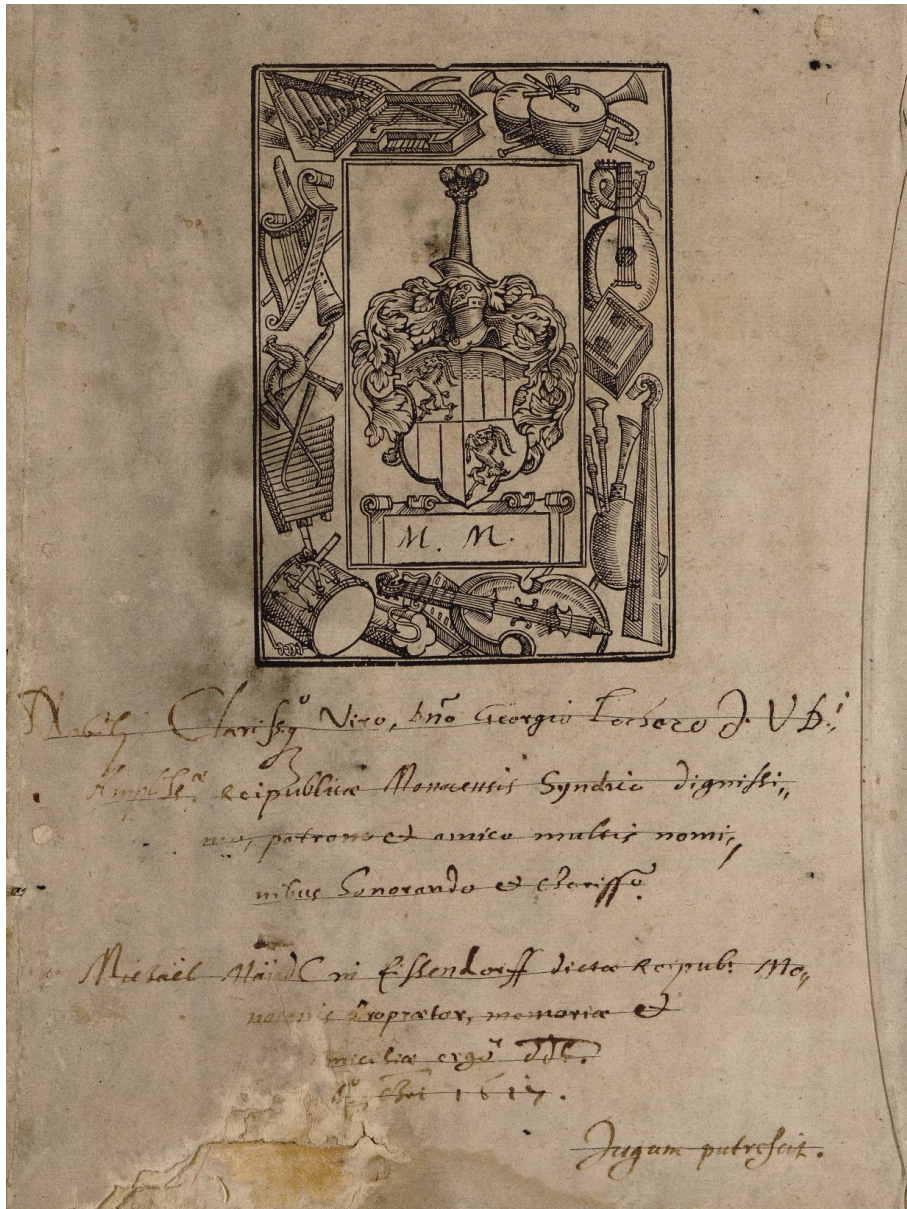 M. M.
Nobili Clariss.o Viro, Dño Georgio Lochero J. V D.ri
Ampliss.æ Reipublicæ Monacensis Syndico dignissi„
mo, patrono et amico multis nomi„
nibus honorando et charisso.
Michäel Mändl in Eissendorff dictæ Reipub: Mo„
nacensis Proprætor, memoriæ et
amicitiæ ergo
Ao Chri 1617.
Jugum putrescit.